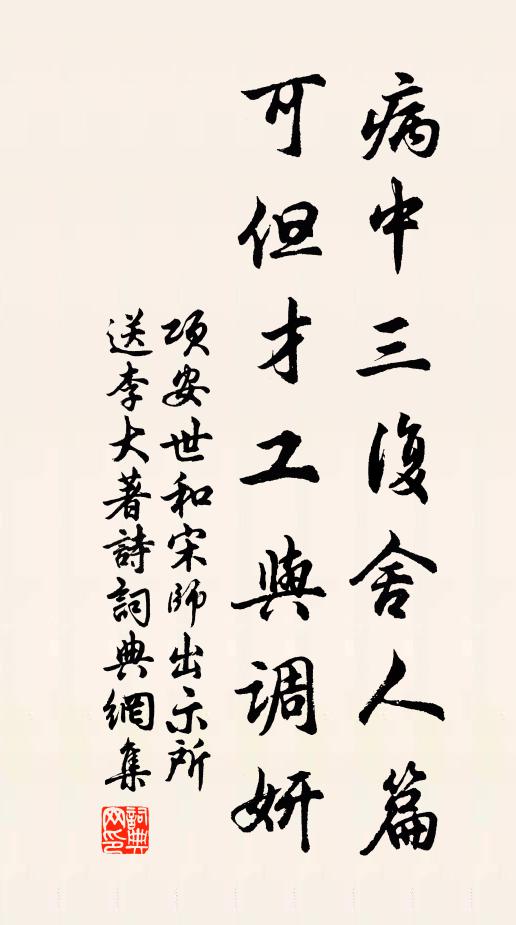 病中三復舍人篇
可但才工與調妍
項安世和宋師出示所
送李大著詩詞典網集
詞典網印